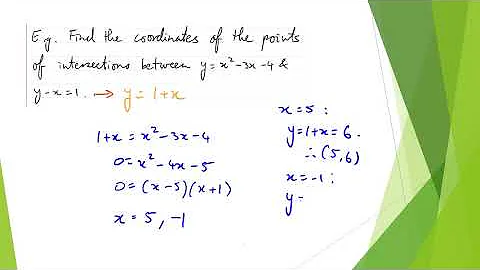 E.g. Find the coordinates of the points
of intersections between y = x² - 3x - 4 &
y - x = 1. → y = 1 + x
1 + x = x² - 3x - 4
0 = x² - 4x - 5
0 = (x - 5)(x + 1)
x = 5, -1
x = 5 :
y = 1 + x = 6.
∴ (5, 6)
x = -1 :
y =